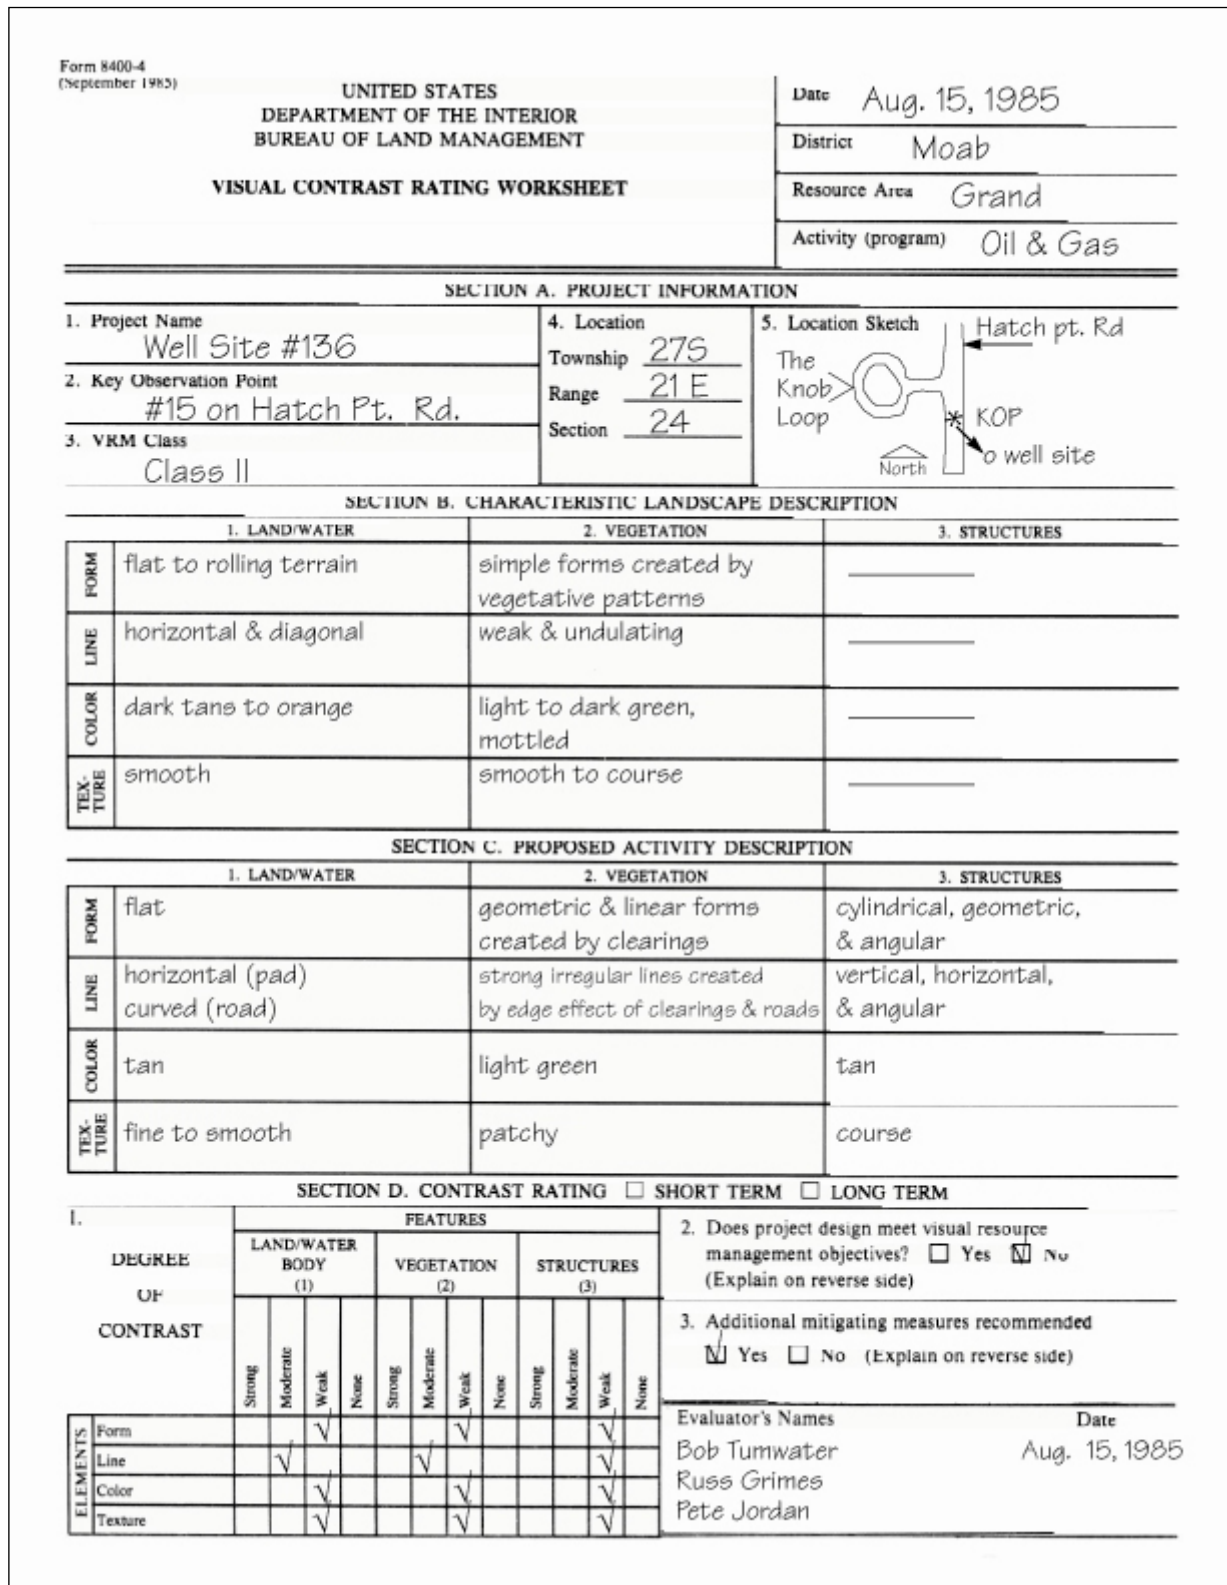 Form 8400-4
(September 1985)
UNITED STATES
DEPARTMENT OF THE INTERIOR
BUREAU OF LAND MANAGEMENT
VISUAL CONTRAST RATING WORKSHEET
Date Aug. 15, 1985
District Moab
Resource Area Grand
Activity (program) Oil & Gas
SECTION A. PROJECT INFORMATION
1. Project Name
Well Site #136
2. Key Observation Point
#15 on Hatch Pt. Rd.
3. VRM Class
Class II
4. Location
Township 27S
Range 21 E
Section 24
5. Location Sketch
Hatch pt. Rd
The
Knob
Loop
KOP
o well site
North
SECTION B. CHARACTERISTIC LANDSCAPE DESCRIPTION
1. LAND/WATER 2. VEGETATION 3. STRUCTURES
FORM
flat to rolling terrain
simple forms created by
vegetative patterns
LINE
horizontal & diagonal
weak & undulating
COLOR
dark tans to orange
light to dark green,
mottled
TEX-
TURE
smooth
smooth to course
SECTION C. PROPOSED ACTIVITY DESCRIPTION
1. LAND/WATER 2. VEGETATION 3. STRUCTURES
FORM
flat
geometric & linear forms
created by clearings
cylindrical, geometric,
& angular
LINE
horizontal (pad)
curved (road)
strong irregular lines created
by edge effect of clearings & roads
vertical, horizontal,
& angular
COLOR
tan
light green
tan
TEX-
TURE
fine to smooth
patchy
course
SECTION D. CONTRAST RATING ☐ SHORT TERM ☐ LONG TERM
1.
DEGREE
OF
CONTRAST
FEATURES
LAND/WATER
BODY
(1)
VEGETATION
(2)
STRUCTURES
(3)
Strong Moderate Weak None Strong Moderate Weak None Strong Moderate Weak None
ELEMENTS
Form √ √ √
Line √ √ √
Color √ √ √
Texture √ √ √
2. Does project design meet visual resource
management objectives? ☐ Yes ☑ No
(Explain on reverse side)
3. Additional mitigating measures recommended
☑ Yes ☐ No (Explain on reverse side)
Evaluator's Names Date
Bob Tumwater Aug. 15, 1985
Russ Grimes
Pete Jordan